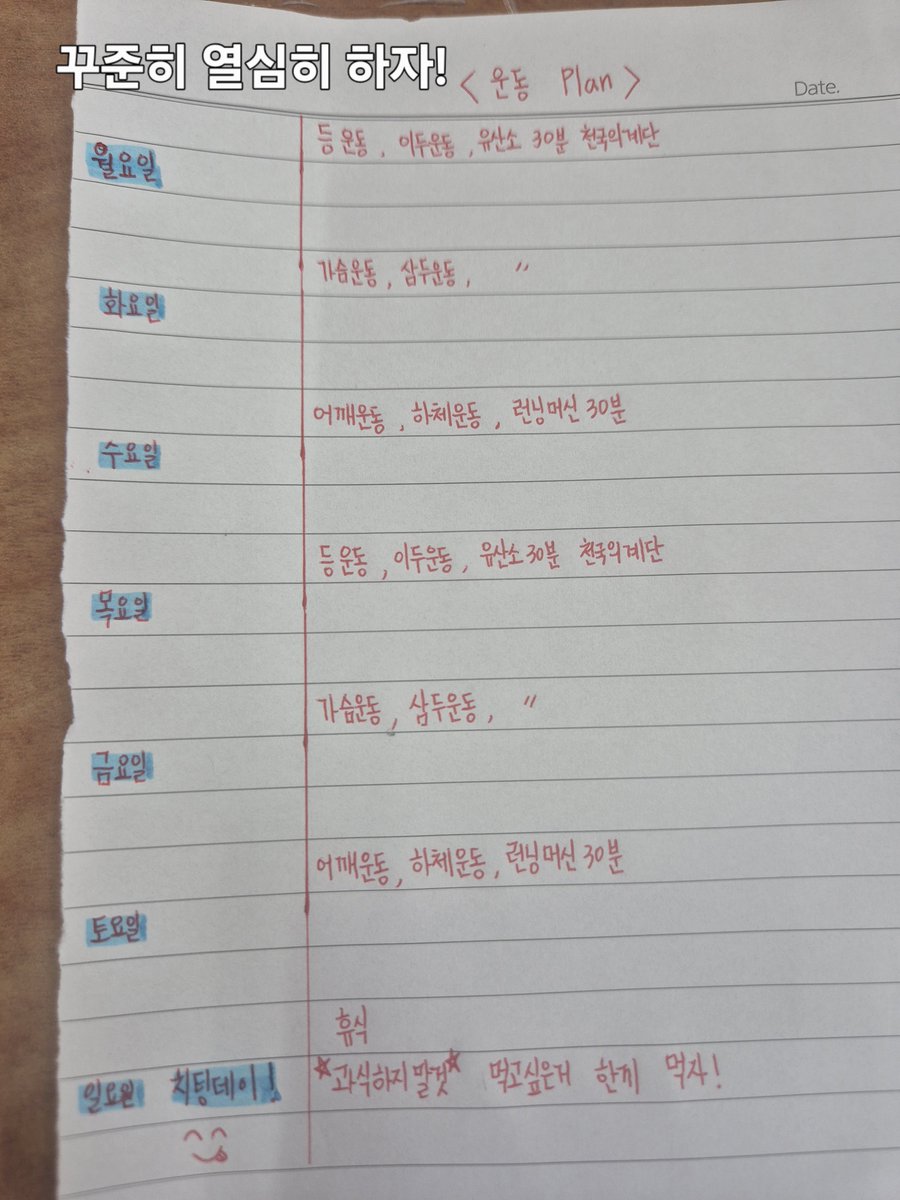 꾸준히 열심히 하자!
< 운동 Plan >
Date.
등운동, 이두운동, 유산소 30분 천국의계단
월요일
가슴운동, 삼두운동, 〃
화요일
어깨운동, 하체운동, 런닝머신 30분
수요일
등운동, 이두운동, 유산소 30분 천국의계단
목요일
가슴운동, 삼두운동, 〃
금요일
어깨운동, 하체운동, 런닝머신 30분
토요일
휴식
일요일 치팅데이! ★과식하지말것★ 먹고싶은거 한끼 먹자!